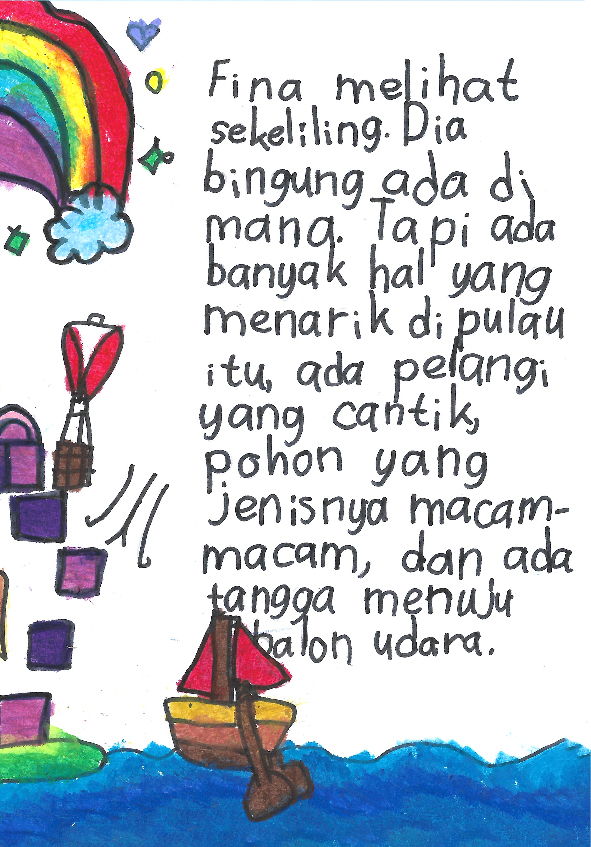 Fina melihat
sekeliling. Dia
bingung ada di
mana. Tapi ada
banyak hal yang
menarik di pulau
itu, ada pelangi
yang cantik,
pohon yang
jenisnya macam-
macam, dan ada
tangga menuju
balon udara.